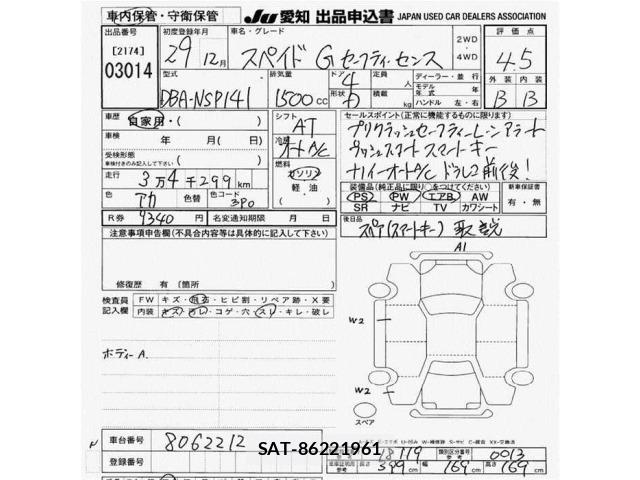 車内保管・守衛保管 JU 愛知 出品申込書 JAPAN USED CAR DEALERS ASSOCIATION
出品番号 初度登録年月 車名・グレード 2WD・4WD 評価点
[2174] 03014 29年12月 スペイド G セーフティセンス 4.5
型式 排気量 ドア形状 定員 人 ディーラー・並行 外装 内装
DBA-NSP141 1500cc 4 積載 kg モデル年式 年 ハンドル 左・右 B B
車歴 自家用・( ) シフト AT セールスポイント(正常に機能するものに限ります)
車検 年 月(日) 冷房 オートA/C
受検形態 車検付きのみ記入して下さい ( ) 燃料 ガソリン 軽・油
走行 3万4千299km ナイトオートA/C ドラレコ前後!
色 アカ 色替 色コード 3P0 装備品(純正品に限り○をつけてください) 新車保証書
PS PW エアB AW 有・無
SR ナビ TV カワシート
R券 9340円 名変通知期限 月 日 後日品 スペア(スマートキー)取説
注意事項申告欄(不具合内容等は具体的に記入して下さい)
A1
修復歴 有 (箇所
検査員記入欄 FW キズ・飛石・ヒビ割・リペア跡・X要
内装 キズ・ヨレ・コゲ・穴・スレ・キレ・破レ
W2
ボディーA.
W2
スペア
車台番号 8062212
登録番号
SAT-86221961
18119 類別区分番号 0013
長さ 399cm 幅 169cm 高さ 169cm